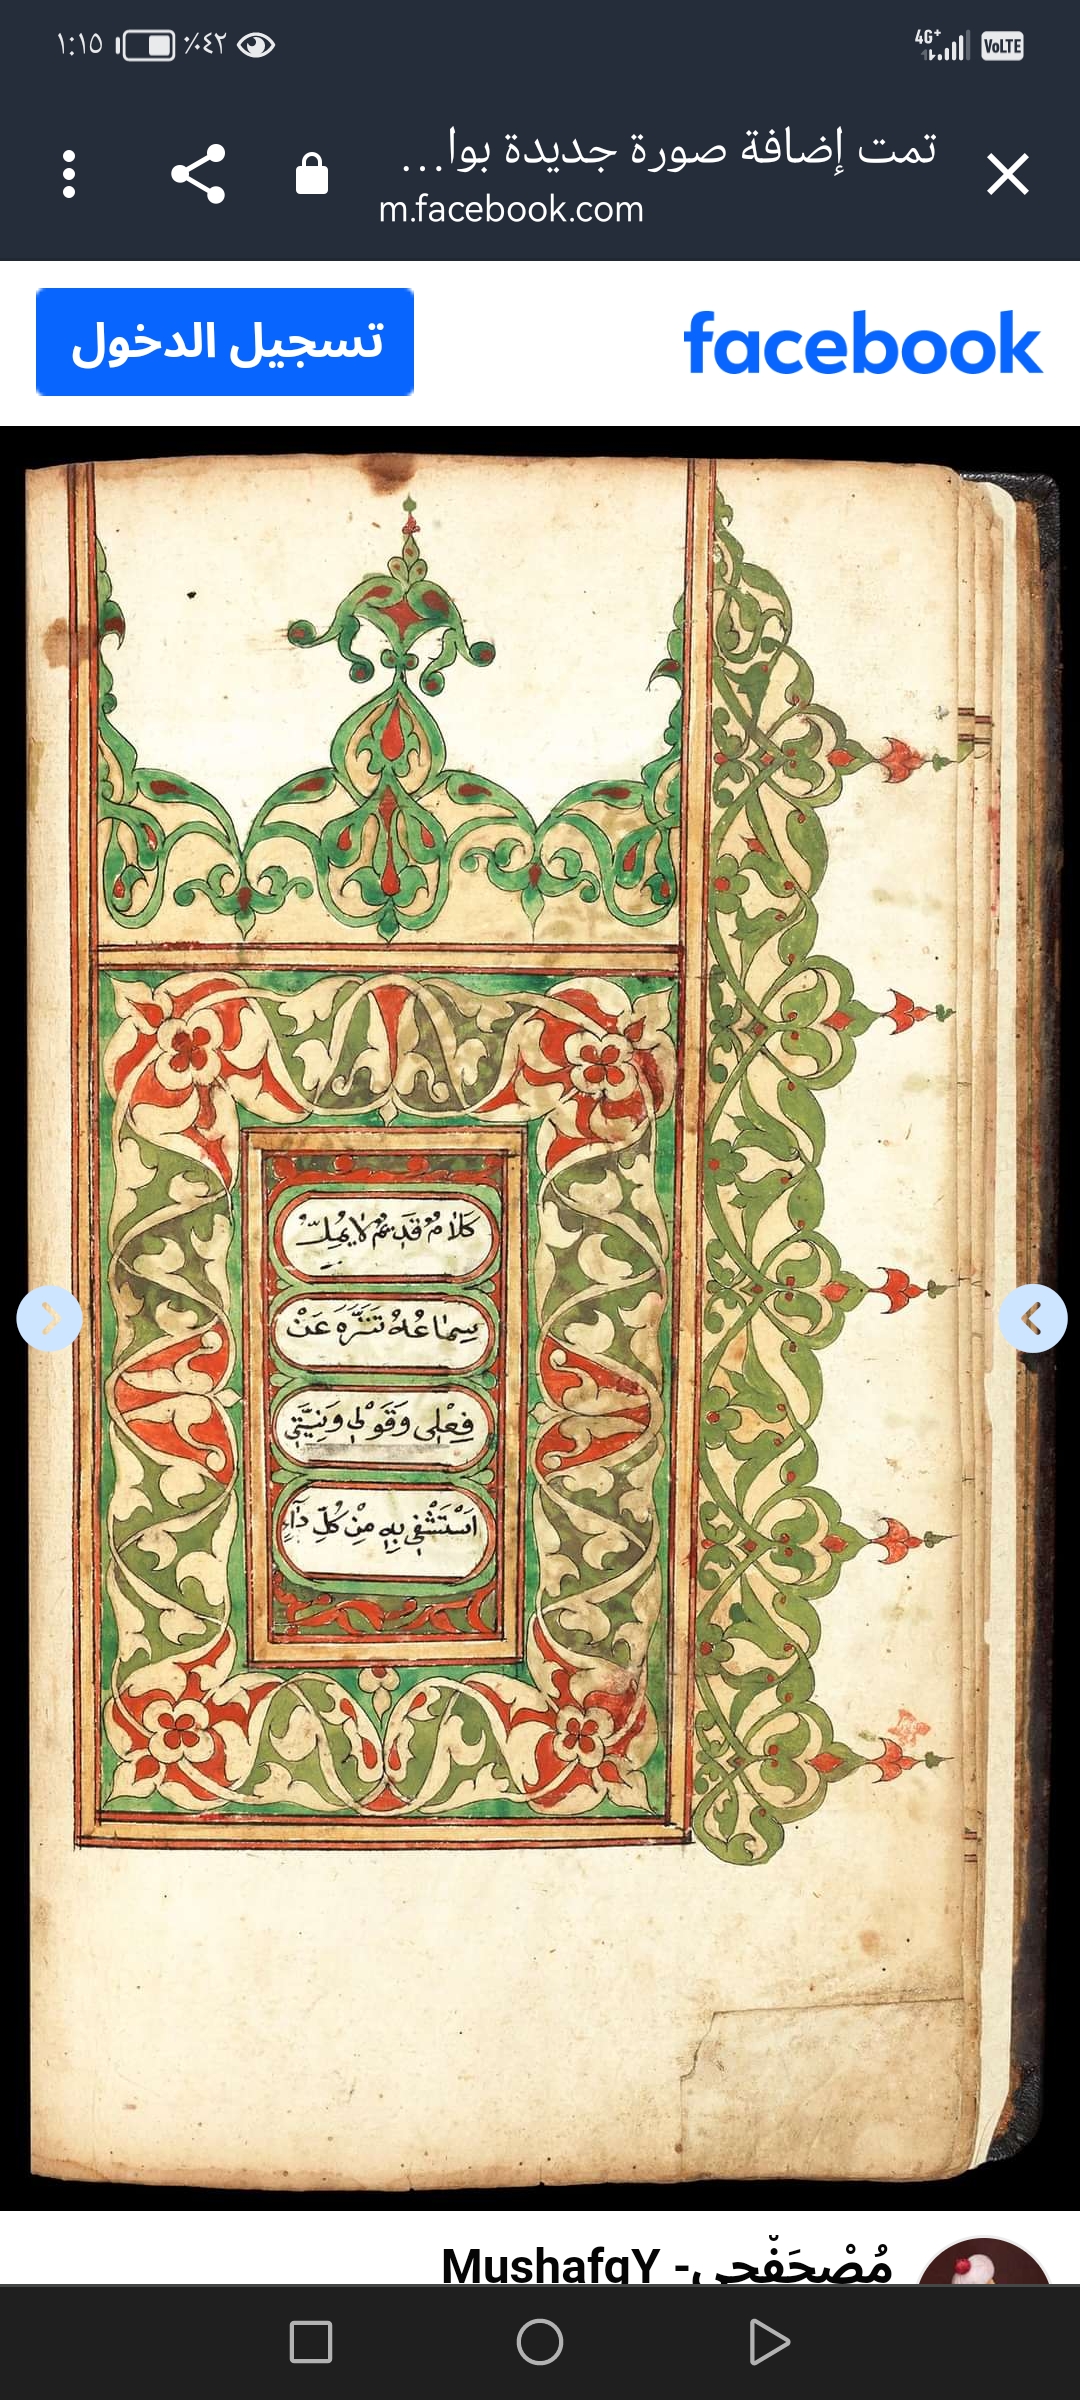 ١:١٥
٪٤٢
4G+
VoLTE
تمت إضافة صورة جديدة بوا...
m.facebook.com
تسجيل الدخول
facebook
كَلَامٌ قَدِيمٌ لَا يُمَلُّ
سِمَاعُهُ تَنَزَّهَ عَنْ
فِعْلِي وَقَوْلِي وَنِيَّتِي
اَسْتَشْفِي بِهِ مِنْ كُلِّ دَآءٍ
مُصْحَفْجِي- MushafgY